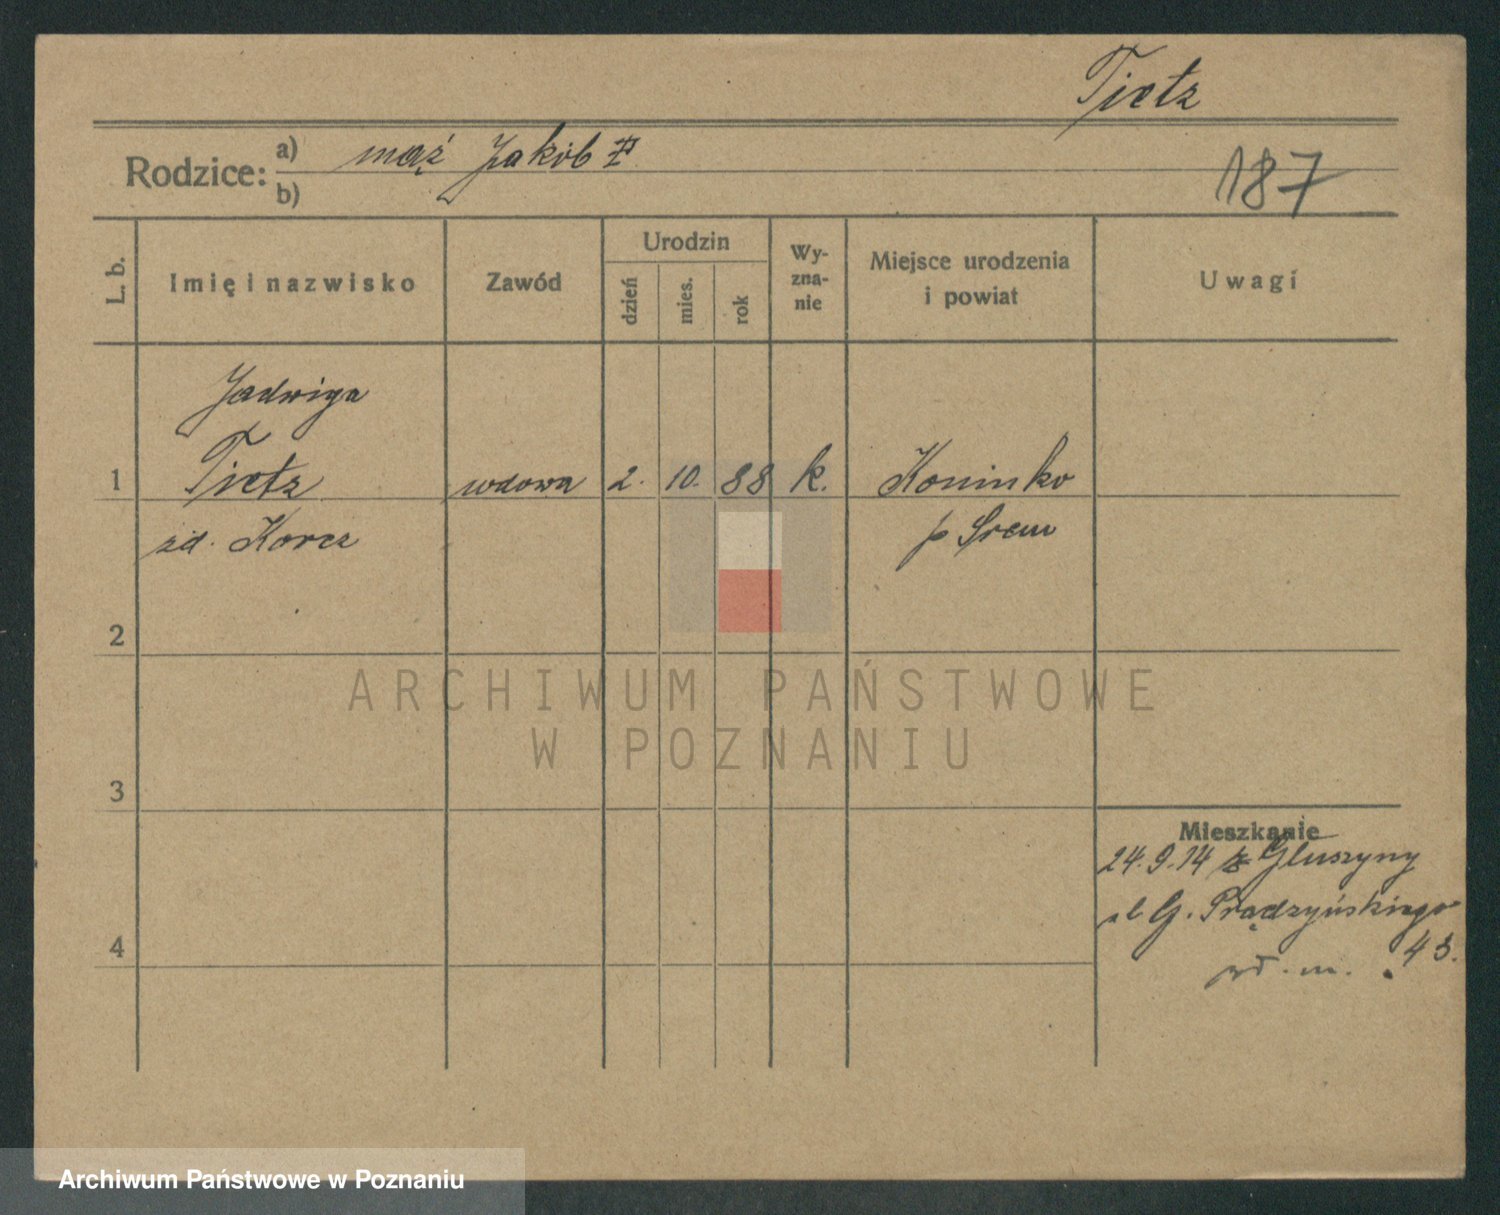 Tietz
Rodzice: a) mąż Jakób
b)
187
L. b.
Imię i nazwisko
Zawód
Urodzin
dzień
mies.
rok
Wy-
zna-
nie
Miejsce urodzenia
i powiat
Uwagi
Jadwiga
1 Tietz wdowa 2. 10. 88 k. Koninko
zd. Korcz p Srem
2
ARCHIWUM PAŃSTWOWE
W POZNANIU
3
Mieszkanie
24.9.14 z Głuszyny
ul G. Prądzyńskiego
43.
4
Archiwum Państwowe w Poznaniu